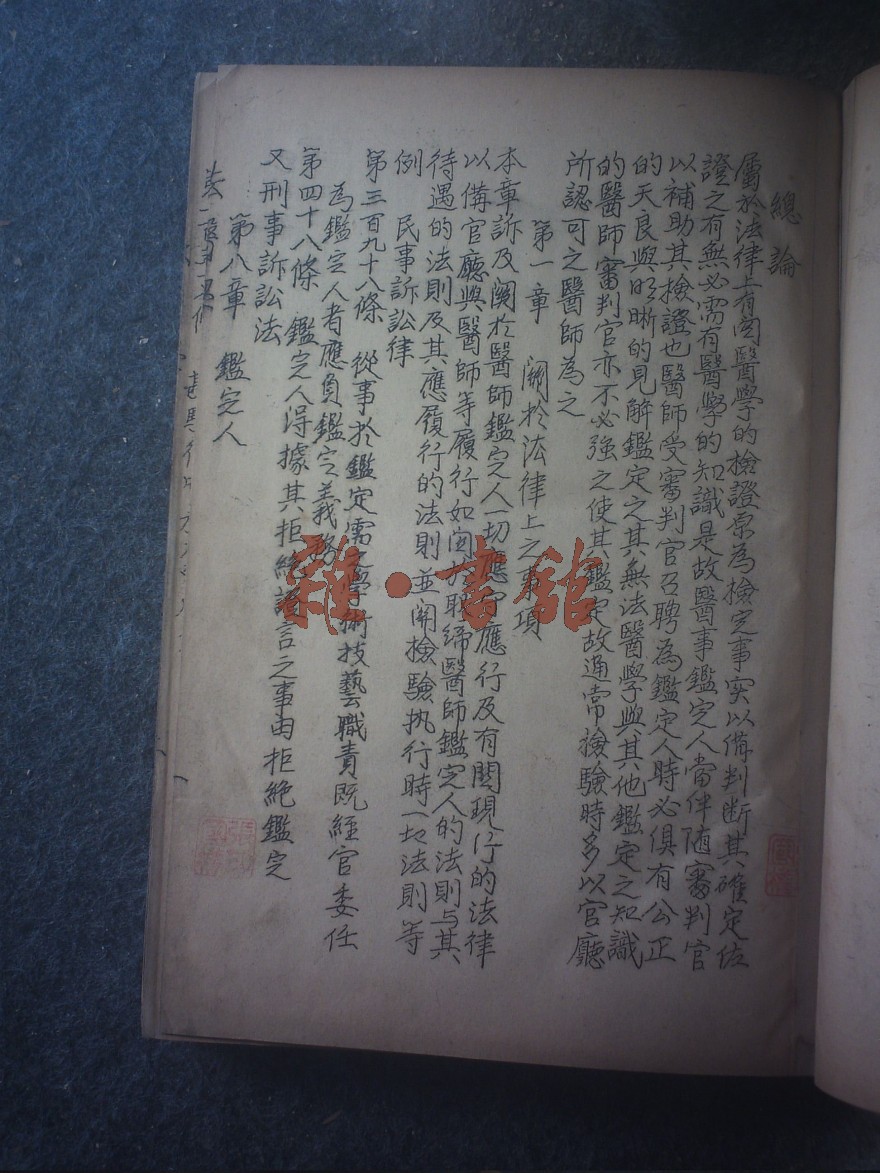 總論
屬於法律上有関醫學的檢證原為檢定事实以備判断其確定佐
證之有無必需有醫學的知識是故醫事鑑定人當伴随審判官
以補助其檢證也醫師受審判官召聘為鑑定人時必俱有公正
的天良與明晰的見解鑑定之其無法醫學與其他鑑定之知識
的醫師審判官亦不必強之使其鑑定故通常檢驗時多以官廳
所認可之醫師為之
第一章 関於法律上之事項
本章訴及関於醫師鑑定人一切應守應行及有関現行的法律
以備官廳與醫師等履行如関於取締醫師鑑定人的法則与其
待遇的法則及其應履行的法則並関檢驗执行時一切法則等
例 民事訴訟律
第三百九十八條 從事於鑑定需之學術技藝職責既經官委任
為鑑定人者應負鑑定義務
第四十八條 鑑定人得據其拒絶證言之事由拒絶鑑定
又刑事訴訟法
第八章 鑑定人
雜·書館